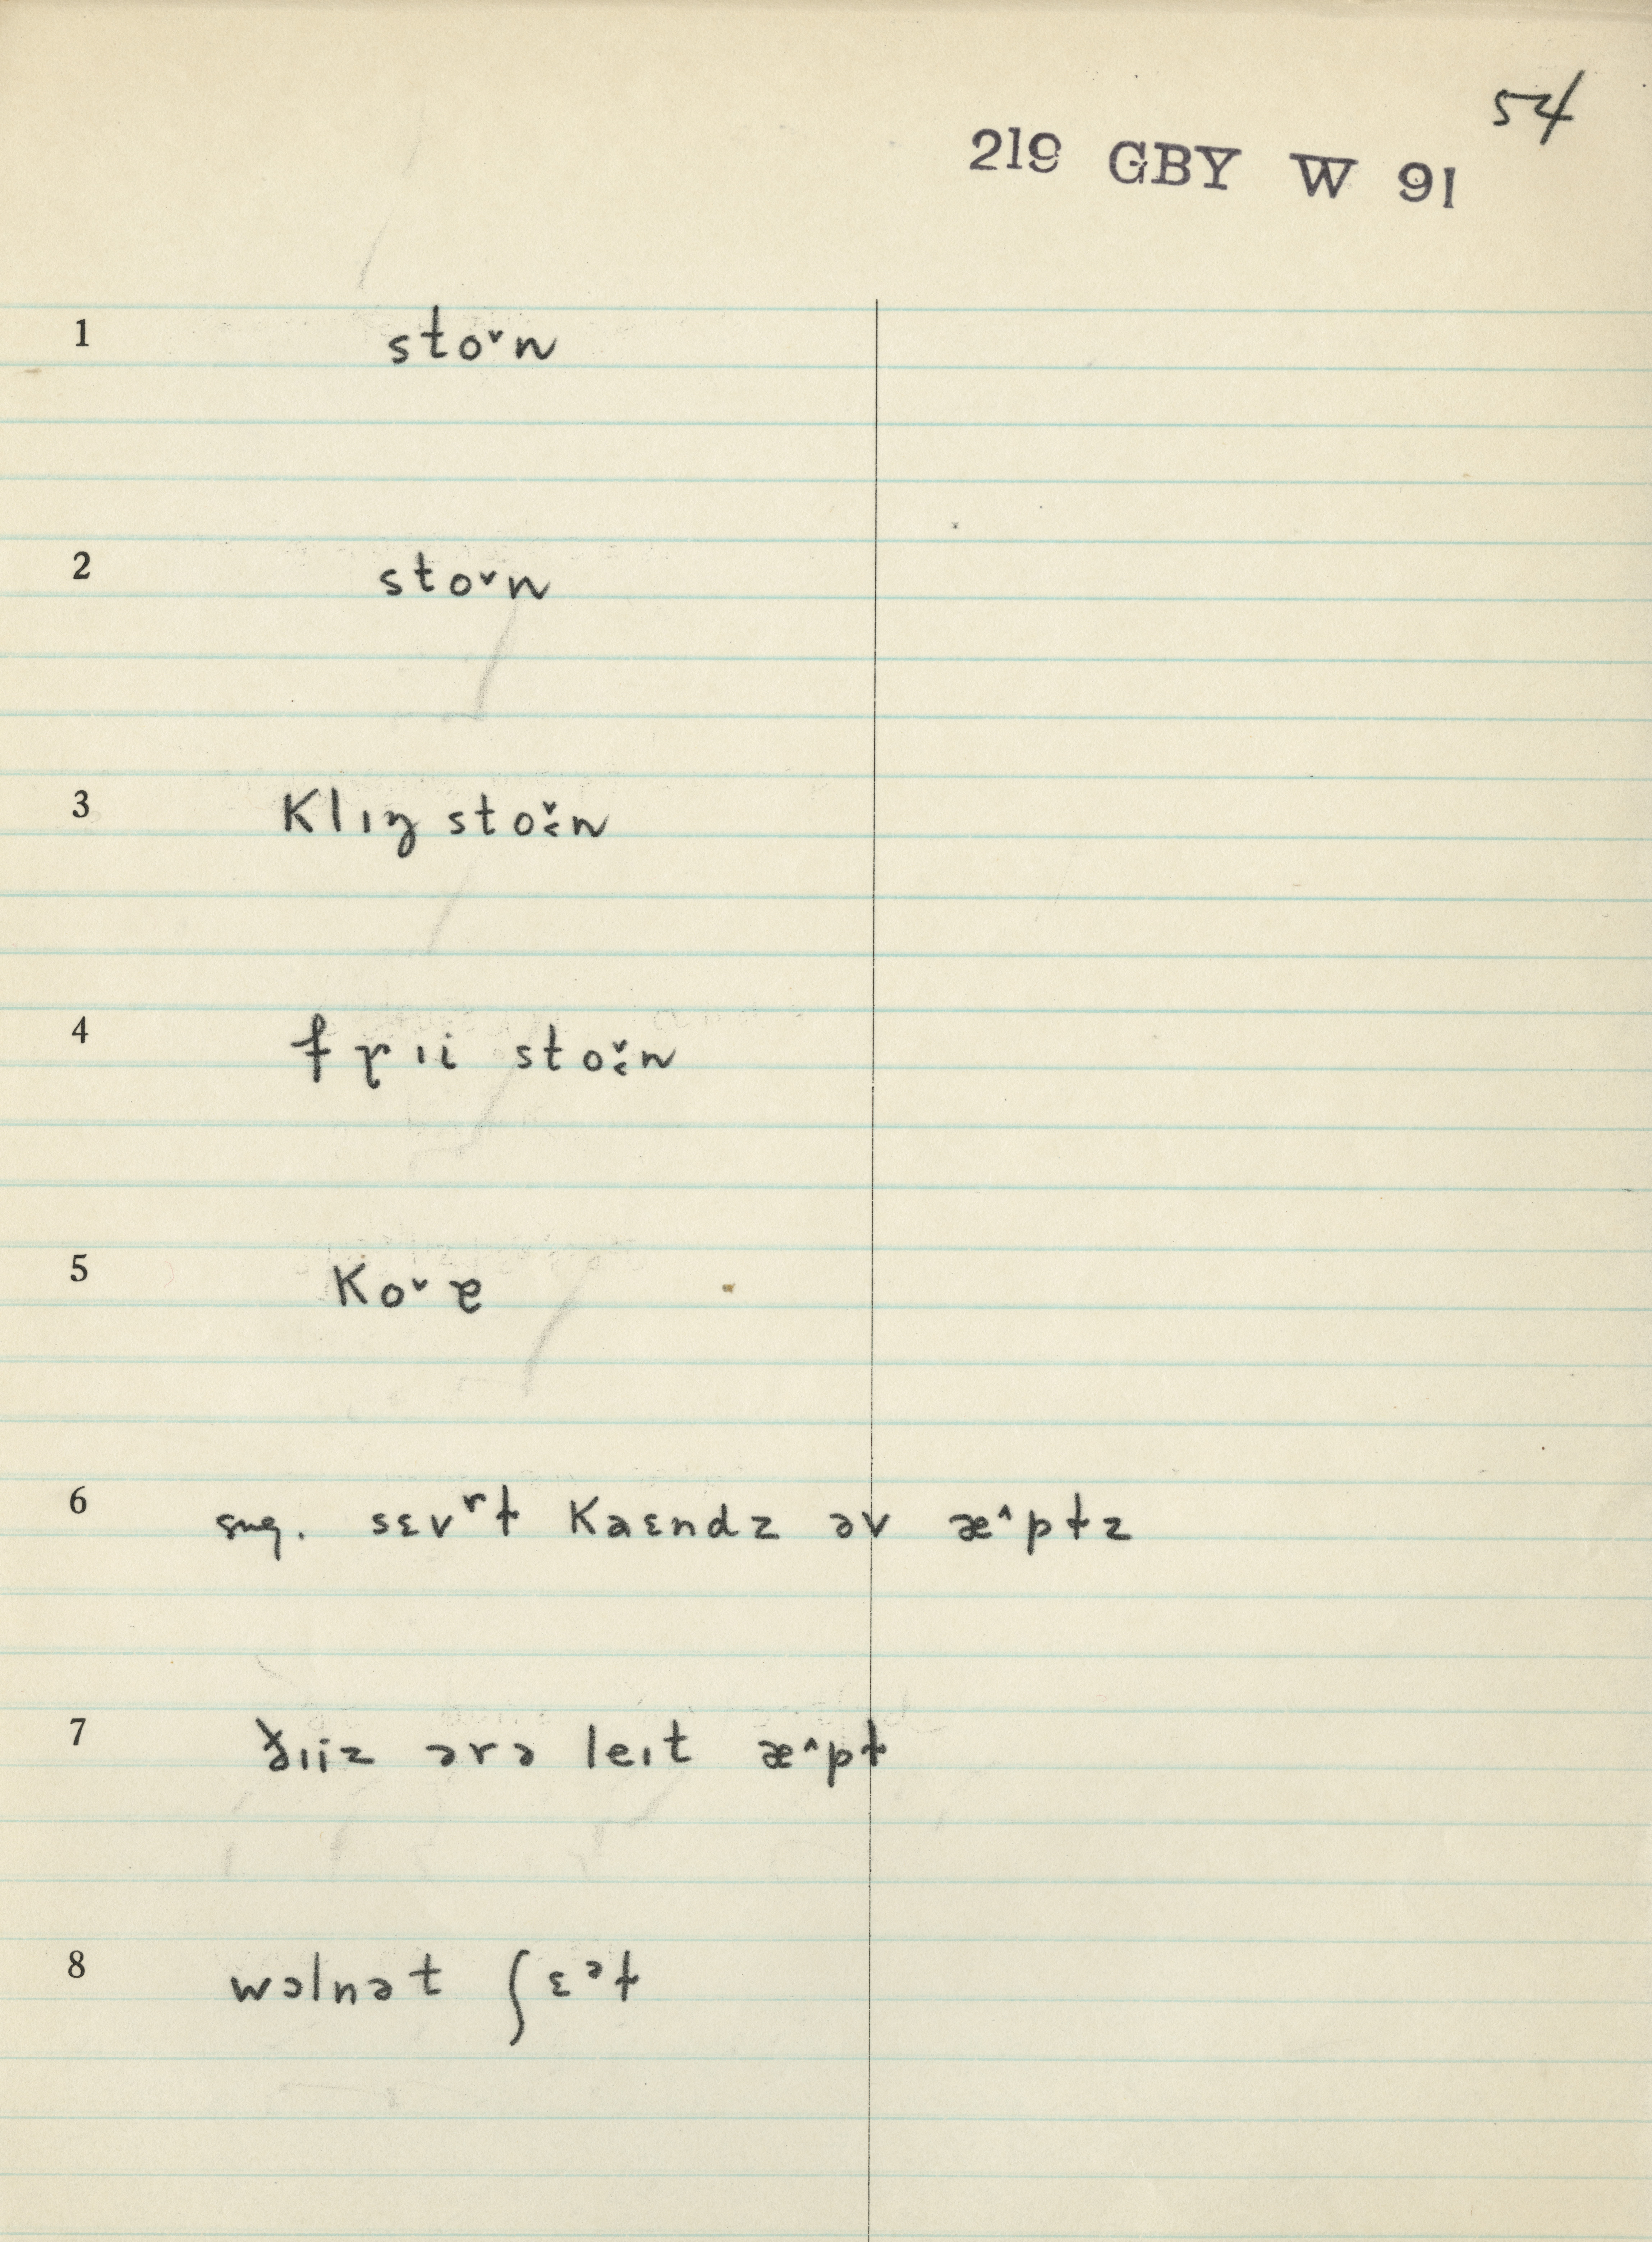 54
219 GBY W 91
1 stoˇn
2 stoˇn
3 klɪŋ stoˇ˱n
4 fɽɪi stoˇ˱n
5 koˇɐ
6 sug. sɛvʳɫ kaɛndz əv æ^pɫz
7 ðɪiz ərə leɪt æ^pɫ
8 wəlnət ʃɛᵊɫ